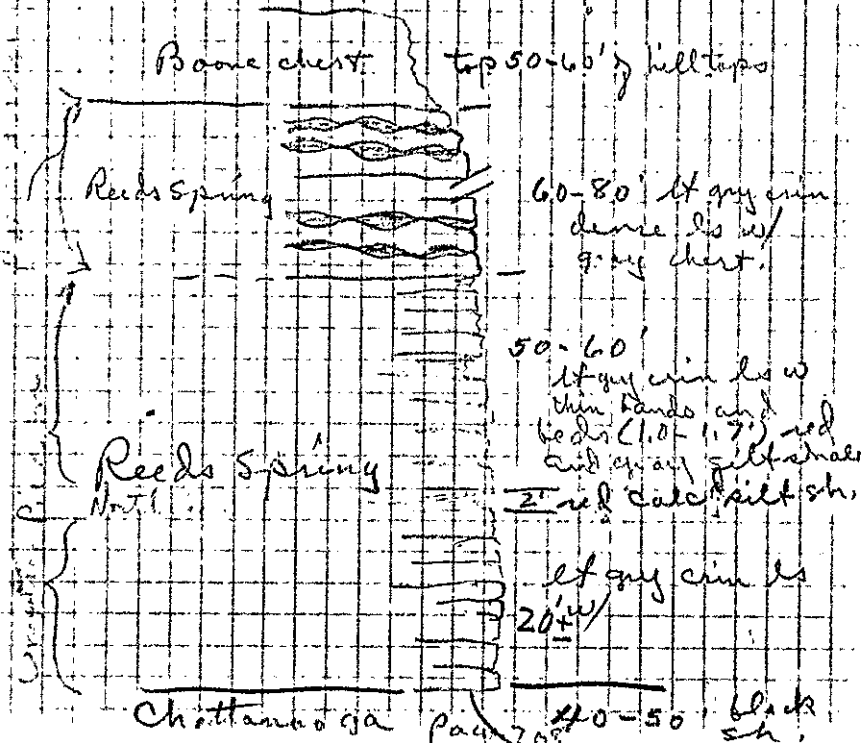 Boone chert top 50-60' of hilltops
Reeds Spring
60-80' lt gry crin
dense ls w/
gray chert.
50-60'
lt gry crin ls w
thin bands and
beds (1.0-1.7') red
and gray silt shale
Reeds Spring
2' red calc silt sh.
lt gry crin ls
20'± w/
Chattanooga 40-50' black
sh.